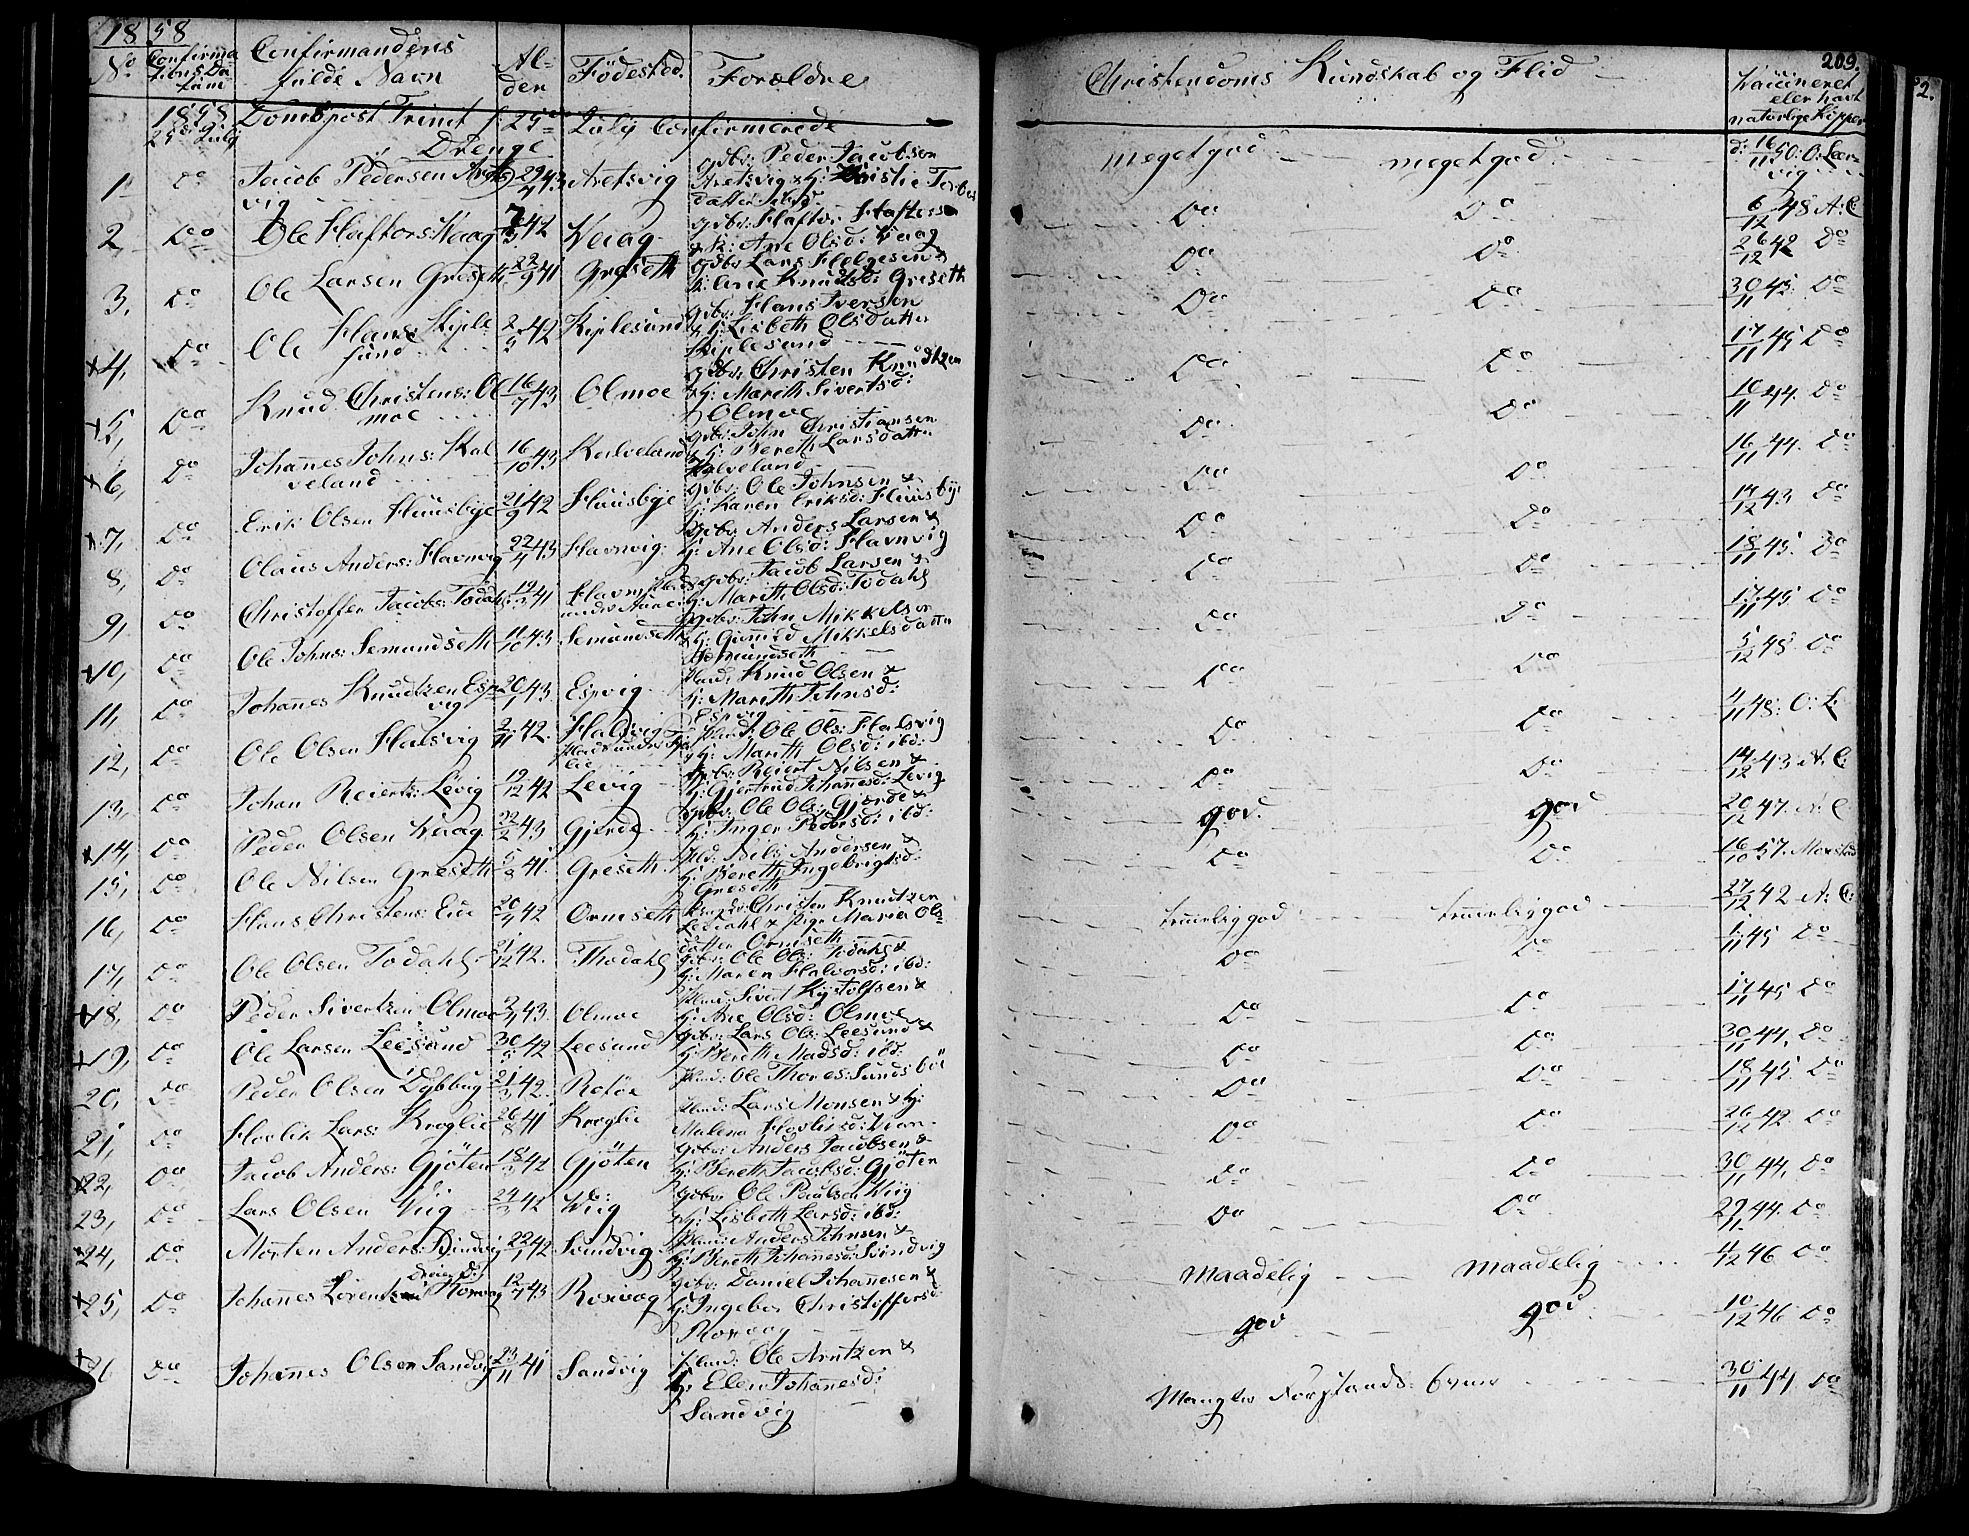 1858
No
Confirma
tions Da
tum
Confirmandens
fulde Navn
Al-
der
Fødested.
Forældre
Christendoms Kundskab og Flid
209.
Vaccineret
eller havt
naturlige Kopper
1858
25de July
Domspost Trinit 25de July Confirmerede
Drenge
1 Do Jacob Pedersen Arets 29/4 43 Aretsvig gbr: Peder Jacobsen
vig Aretsvig & H:
meget god meget god d: 16/11 50: O: Leer
vig
2 Do Ole Haftors: Waag 42 Waag gbr: Haftor Haftorsen
& H: Ane Olsd: Waag
Do Do 6/12 48 A: C
3, Do Ole Larsen Greseth 22/9 41 Greseth gbr Lars Helgesen &
H: Ane Knudsd: Greseth
Do Do 26/12 42 Do
4, Do Ole Hans: Kiple 42 Kiplesund gbr: Hans Iversen
sund & H: Lisbeth Olsdatter
Kiplesund
Do Do 30/11 45 Do
5, Do Knud Christens: Ol 16/7 43 Olmoe gbr: Christen Knudtzen
moe & H: Mareth Sivertsd:
Olmoe
Do Do 17/11 45 Do
6, Do Johannes Johns: Kal 16/10 43 Kalveland gbr: John Christiansen
veland & H: Bereth Larsdatter
Kalveland
Do Do 16/11 44. Do
7, Do Erik Olsen Huusbye 21/9 42 Huusbye gbr: Ole Johnsen &
H: Karen Eriksd: Huusbye
Do Do 16/11 44. Do
8, Do Olaus Anders: Havnvig 22/4 43 Havnvig gbr: Anders Larsen &
H: Ane Olsd: Havnvig
Do Do 43 Do
9, Do Christoffer Jacobs: Todahl 41 gbr: Jacob Larsen &
H: Mareth Olsd: Todahl
Do Do 18/11 45. Do
10, Do Ole Johns: Semundseth 11/10 43 Semundseth gbr: John Mikkelsen
& H: Gunild Mikkelsdatter
Semundseth
Do Do 17/11 45 Do
11, Do Johannes Knudtzen Esp 20/1 43 Espvig Knud Olsen &
vig H: Mareth Johnsd:
Espvig
Do Do 5/12 48 Do
12, Do Ole Olsen Halsvig 2/11 42. Halsvig Ole Ols: Halsvig
H: Mareth Olsd: ibd:
Do Do 4/11 48: O: L
13, Do Johan Reierts: Levig 19/12 42 Levig gbr: Reiert Nilsen &
H: Gjertrud Johannesd: Levig
Do Do 14/12 43 A: C
14, Do Peder Olsen Waag 22/2 43 Gjerde gbr: Ole Ols: Gjerde &
H: Inger Pedersd: ibd:
god. god 20/12 47. A: C
15, Do Ole Nilsen Greseth 41 Greseth Nils Andersen &
H: Bereth Ingebrigtsd:
Greseth
Do Do 16/10 57.
16, Do Hans Christens: Eide 20/4 42 Orniseth Christen Knudtzen
Ledahl & Pige Maria Ols
datter Orniseth
temmelig god temmelig god 27/12 42 A: C:
17, Do Ole Olsen Todahl 21/12 42. Thodahl gbr: Ole Ols: Todahl &
H: Maren Halvorsd: ibd:
Do Do 1/11 45 Do
18, Do Peder Sivertzen Olmoe 2/4 43. Olmoe Sivert Kystolfsen &
H: Ane Olsd: Olmoe
Do Do 17/11 45 Do
19, Do Ole Larsen Leesund 30/5 42 Leesund gbr: Lars Ols: Leesund &
H: Bereth Madsd: ibd:
Do Do 30/11 44, Do
20, Do Peder Olsen Dybbug 21/3 42. Rotøe Ole Thores: Sundsbø
Do Do 18/11 45 Do
21, Do Hovlik Lars: Kroglie 26/8 41 Kroglie Lars Monsen & H:
Malena
Do Do 26/12 42. Do
22, Do Jacob Anders: Gjøten 18/3 42 Gjøten gbr: Anders Jacobsen &
H: Bereth Jacobsd: Gjøten
Do Do 30/11 44, Do
23, Do Lars Olsen Wiig 24/3 42 Wiig gbr: Ole Paulsen Wiig
& H: Lisbeth Larsd: ibd:
Do Do 29/11 44. Do
24, Do Morten Anders: Svindvig 22/1 42 Svindvig Anders Johnsen &
H: Bereth Johannesd: Svindvig
Maadelig Maadelig 4/12 46 Do
25, Do Johannes Lorentzen Roxvog 12/7 43 Roxvog gbr: Daniel Johannesen &
H: Ingebor Christoffersd:
Roxvog
god god 10/12 46. Do
26 Do Johannes Olsen Sandvig 23/11 41 Sandvig Ole Arntzen &
H: Elen Johannesd:
Sandvig
Mangler Forstands Evner 30/11 44 Do
2.